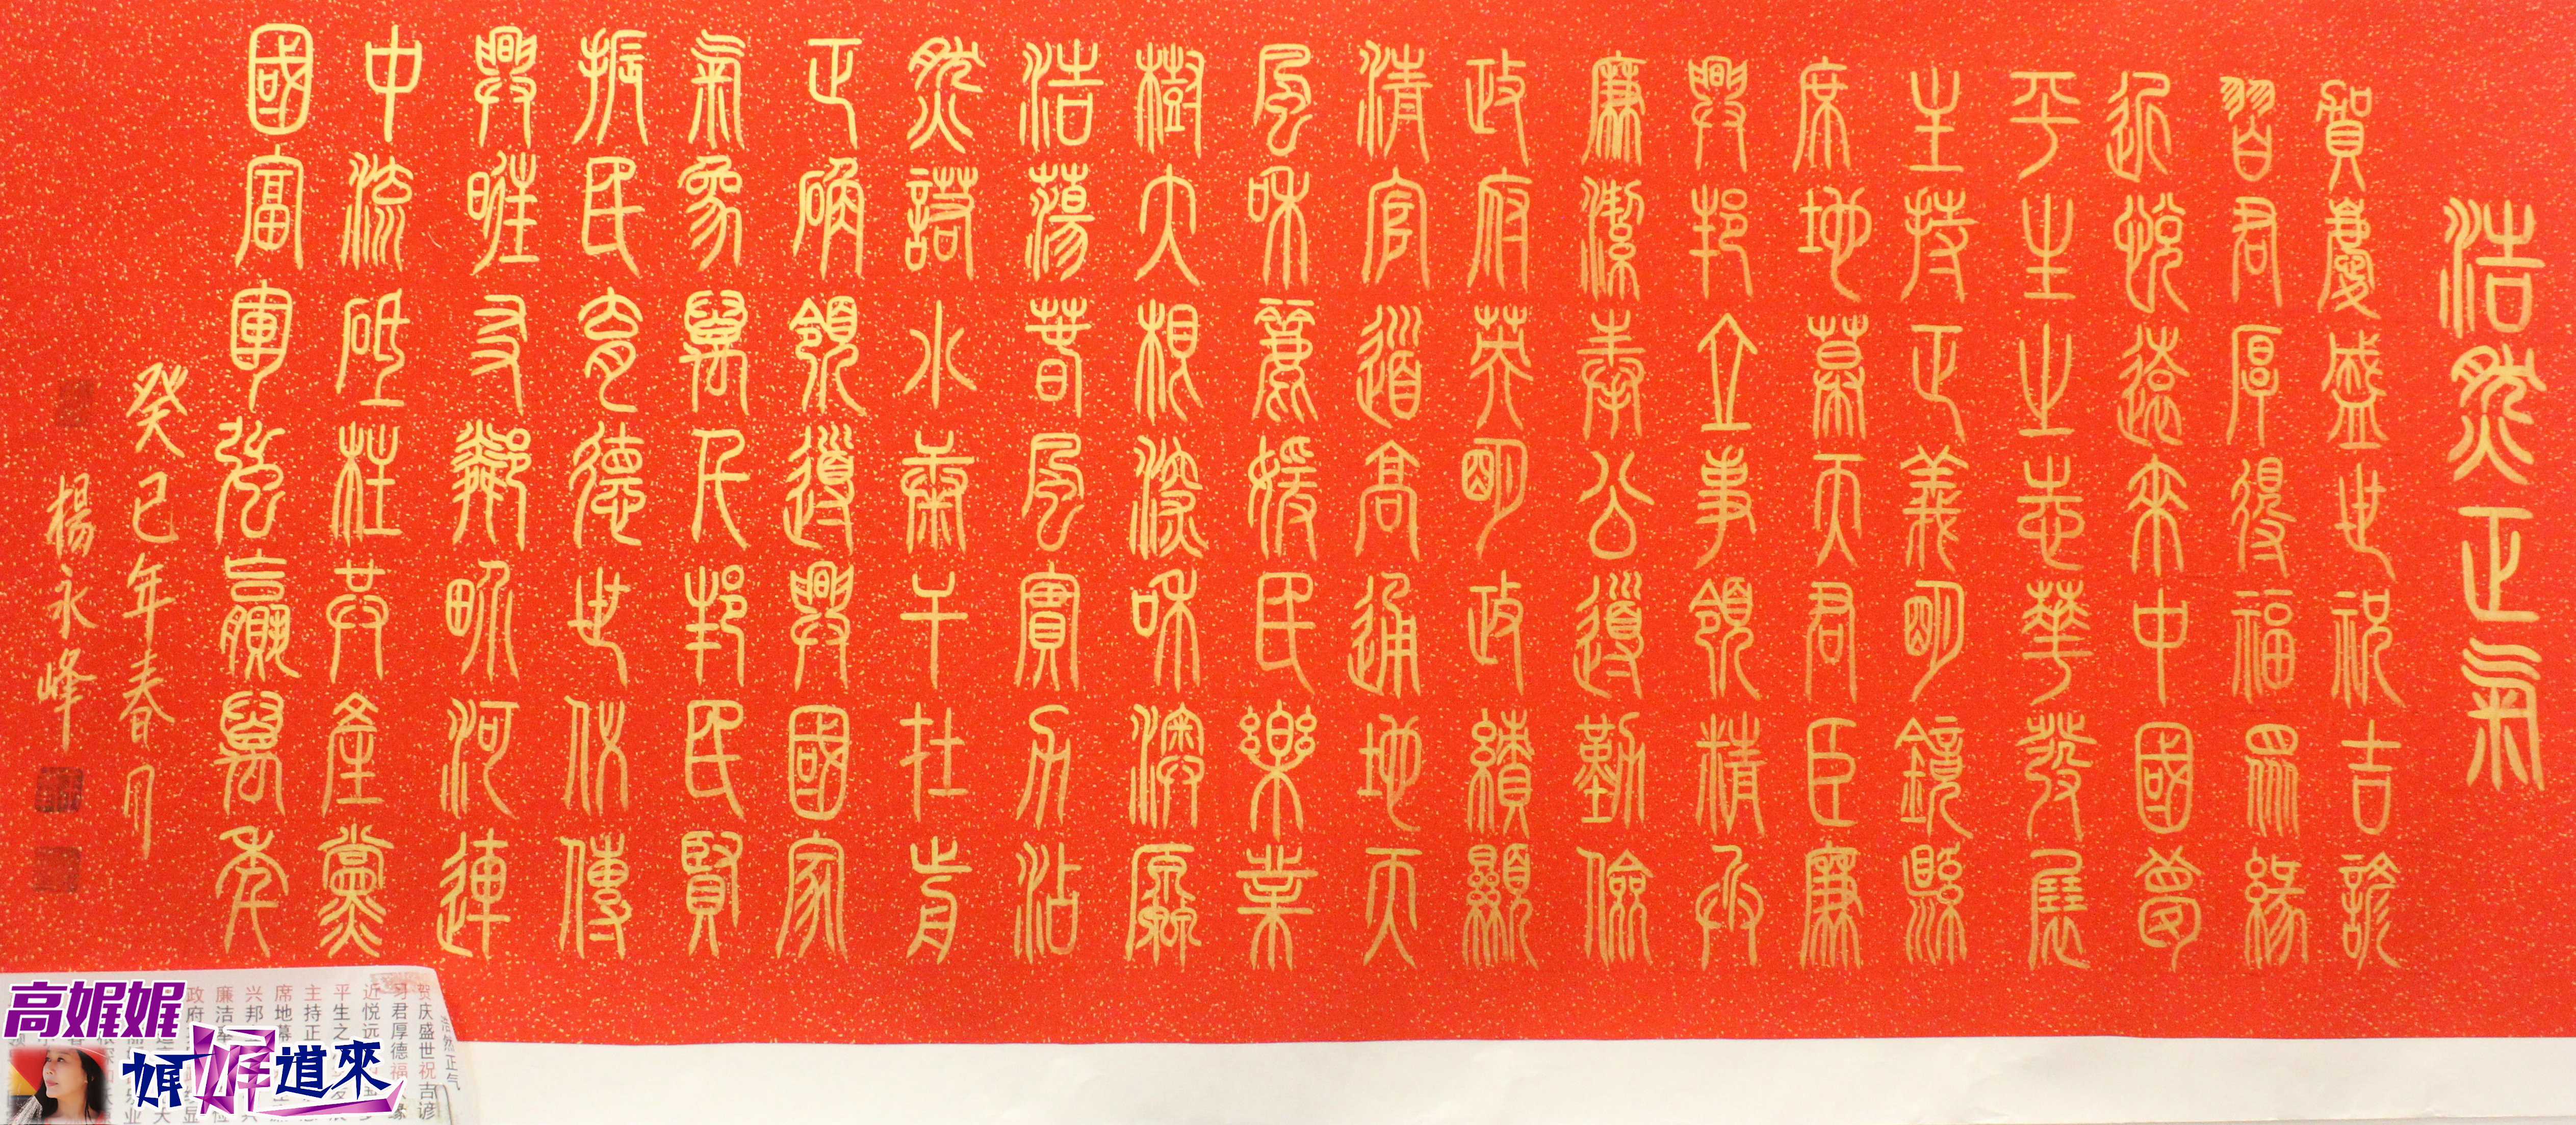 浩然正氣
賀慶盛世祝吉諺
習君厚得福眾緣
近悅遠來中國夢
平生之志華發展
主持正義明鏡縣
席地幕天君臣廉
興邦立事領精兵
廉潔奉公遵勤儉
政府英明政績顯
清官道高通地天
風和麗媛民樂業
樹大根深和澳
浩蕩春風實力沾
然諾水
正確領導興國家
氣象萬邦民賢
振民育德世代傳
興旺友鄰河連
中流砥柱共產黨
國富軍強贏萬年
癸巳年春月
楊永峰
浩然正气
贺庆盛世祝吉谚
习君厚德福缘
近悦远
平生之
主持正
席地幕
兴邦
廉洁奉
政府
高娓娓
娓娓道來